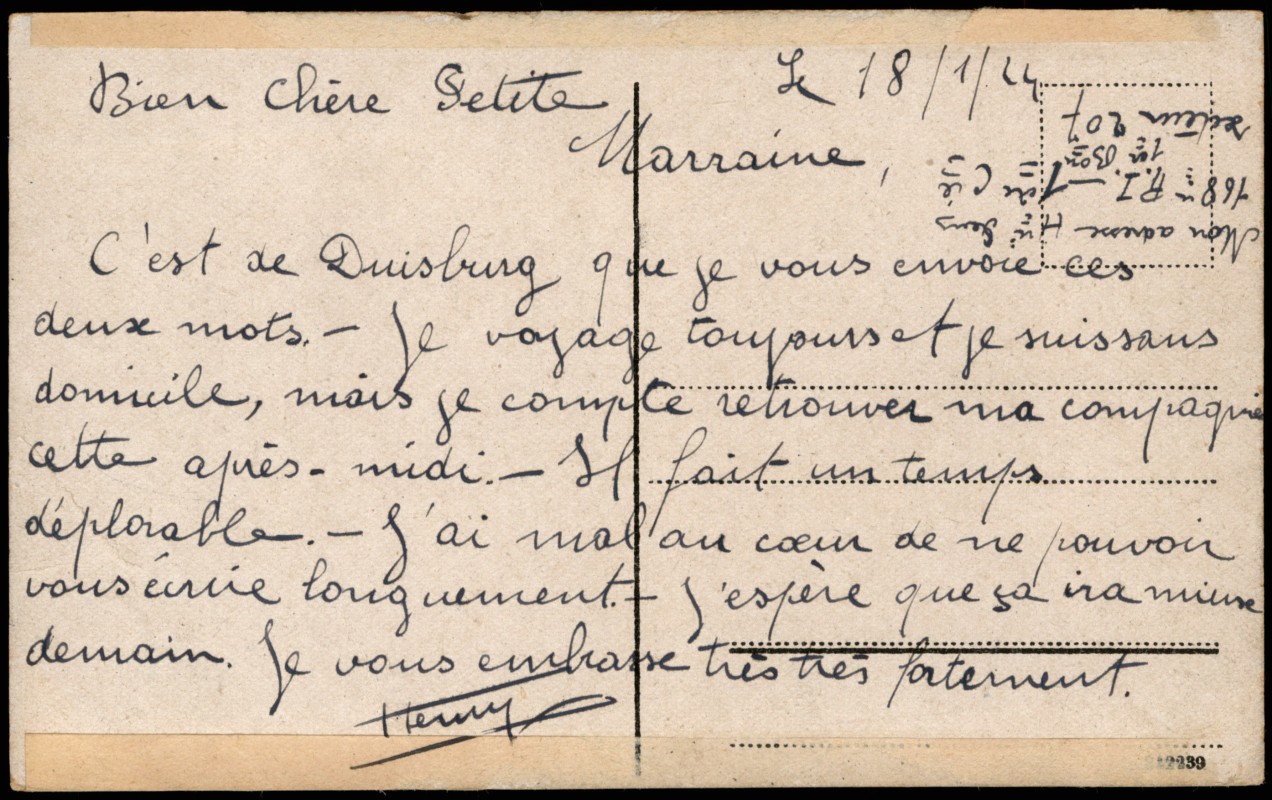 Le 18/1/24
Bien Chère Petite
Marraine,
C'est de Duisburg que je vous envoie ces
deux mots. – Je voyage toujours et je suis sans
domicile, mais je compte retrouver ma compagnie
cette après-midi. – Il fait un temps
déplorable. – J'ai mal au cœur de ne pouvoir
vous écrire longuement. – J'espère que ça ira mieux
demain. Je vous embrasse très très fortement.
Henry
Mon adresse H
168e R.I. – 1er Bon
de Cie
secteur 207
2239